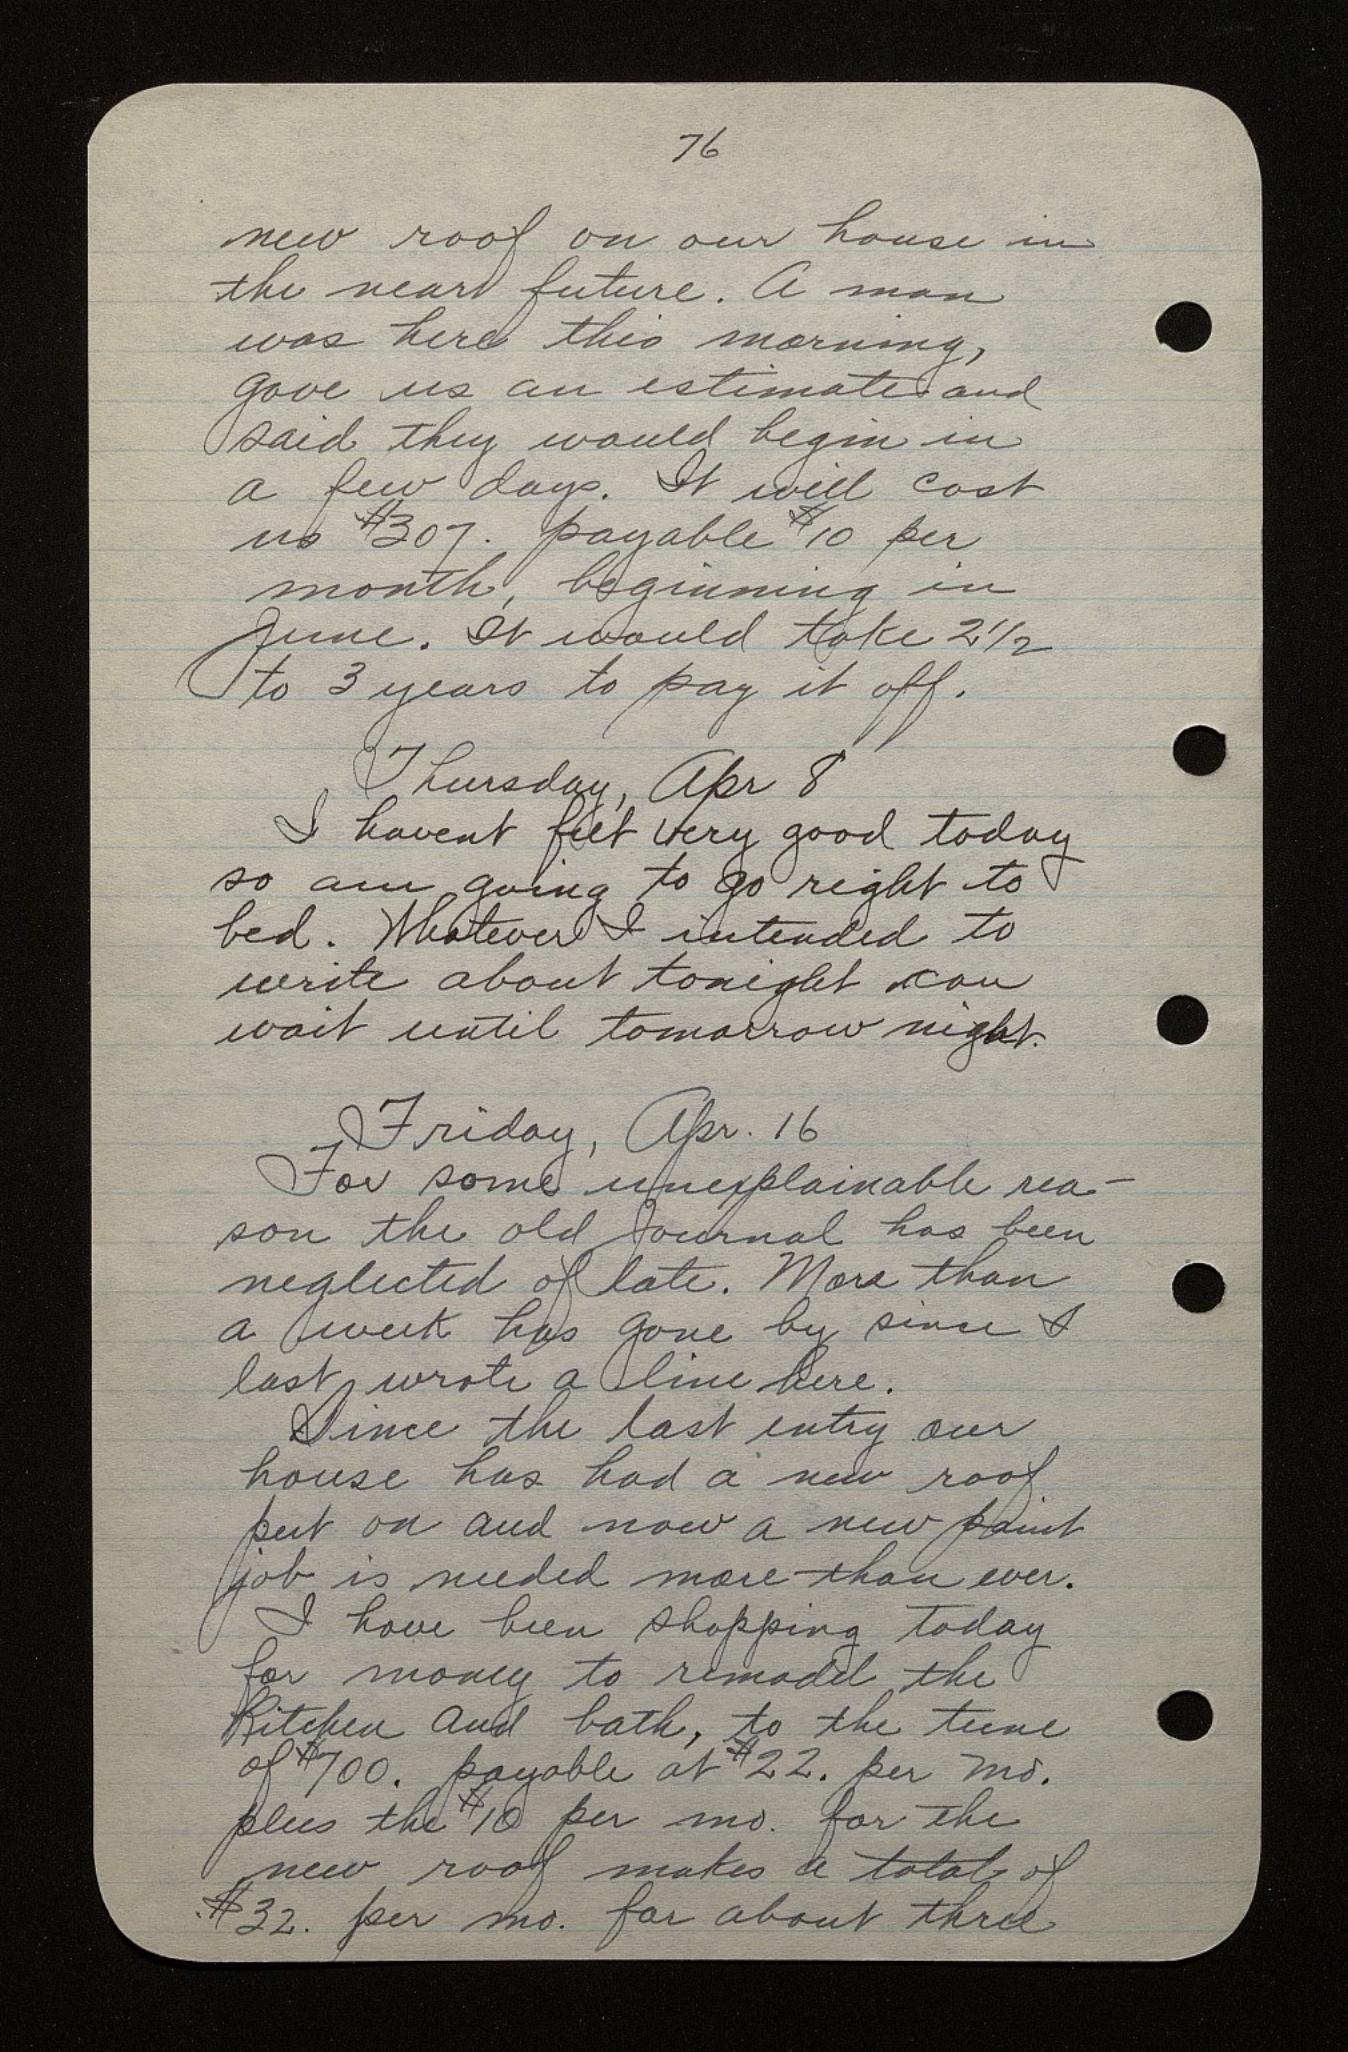 76
new roof on our house in
the near future. A man
was here this morning,
gave us an estimate and
said they would begin in
a few days. It will cost
us $307. payable $10 per
month, beginning in
June. It would take 2 1/2
to 3 years to pay it off.
Thursday, Apr 8
I havent felt very good today
so am going to go right to
bed. Whatever I intended to
write about tonight can
wait until tomorrow night.
Friday, Apr. 16
For some unexplainable rea-
son the old Journal has been
neglected of late. More than
a week has gone by since I
last wrote a line here.
Since the last entry our
house has had a new roof
put on and now a new paint
job is needed more than ever.
I have been shopping today
for money to remodel the
Kitchen and bath, to the tune
of $700. payable at $22. per mo.
plus the $10 per mo. for the
new roof makes a total of
$32. per mo. for about three